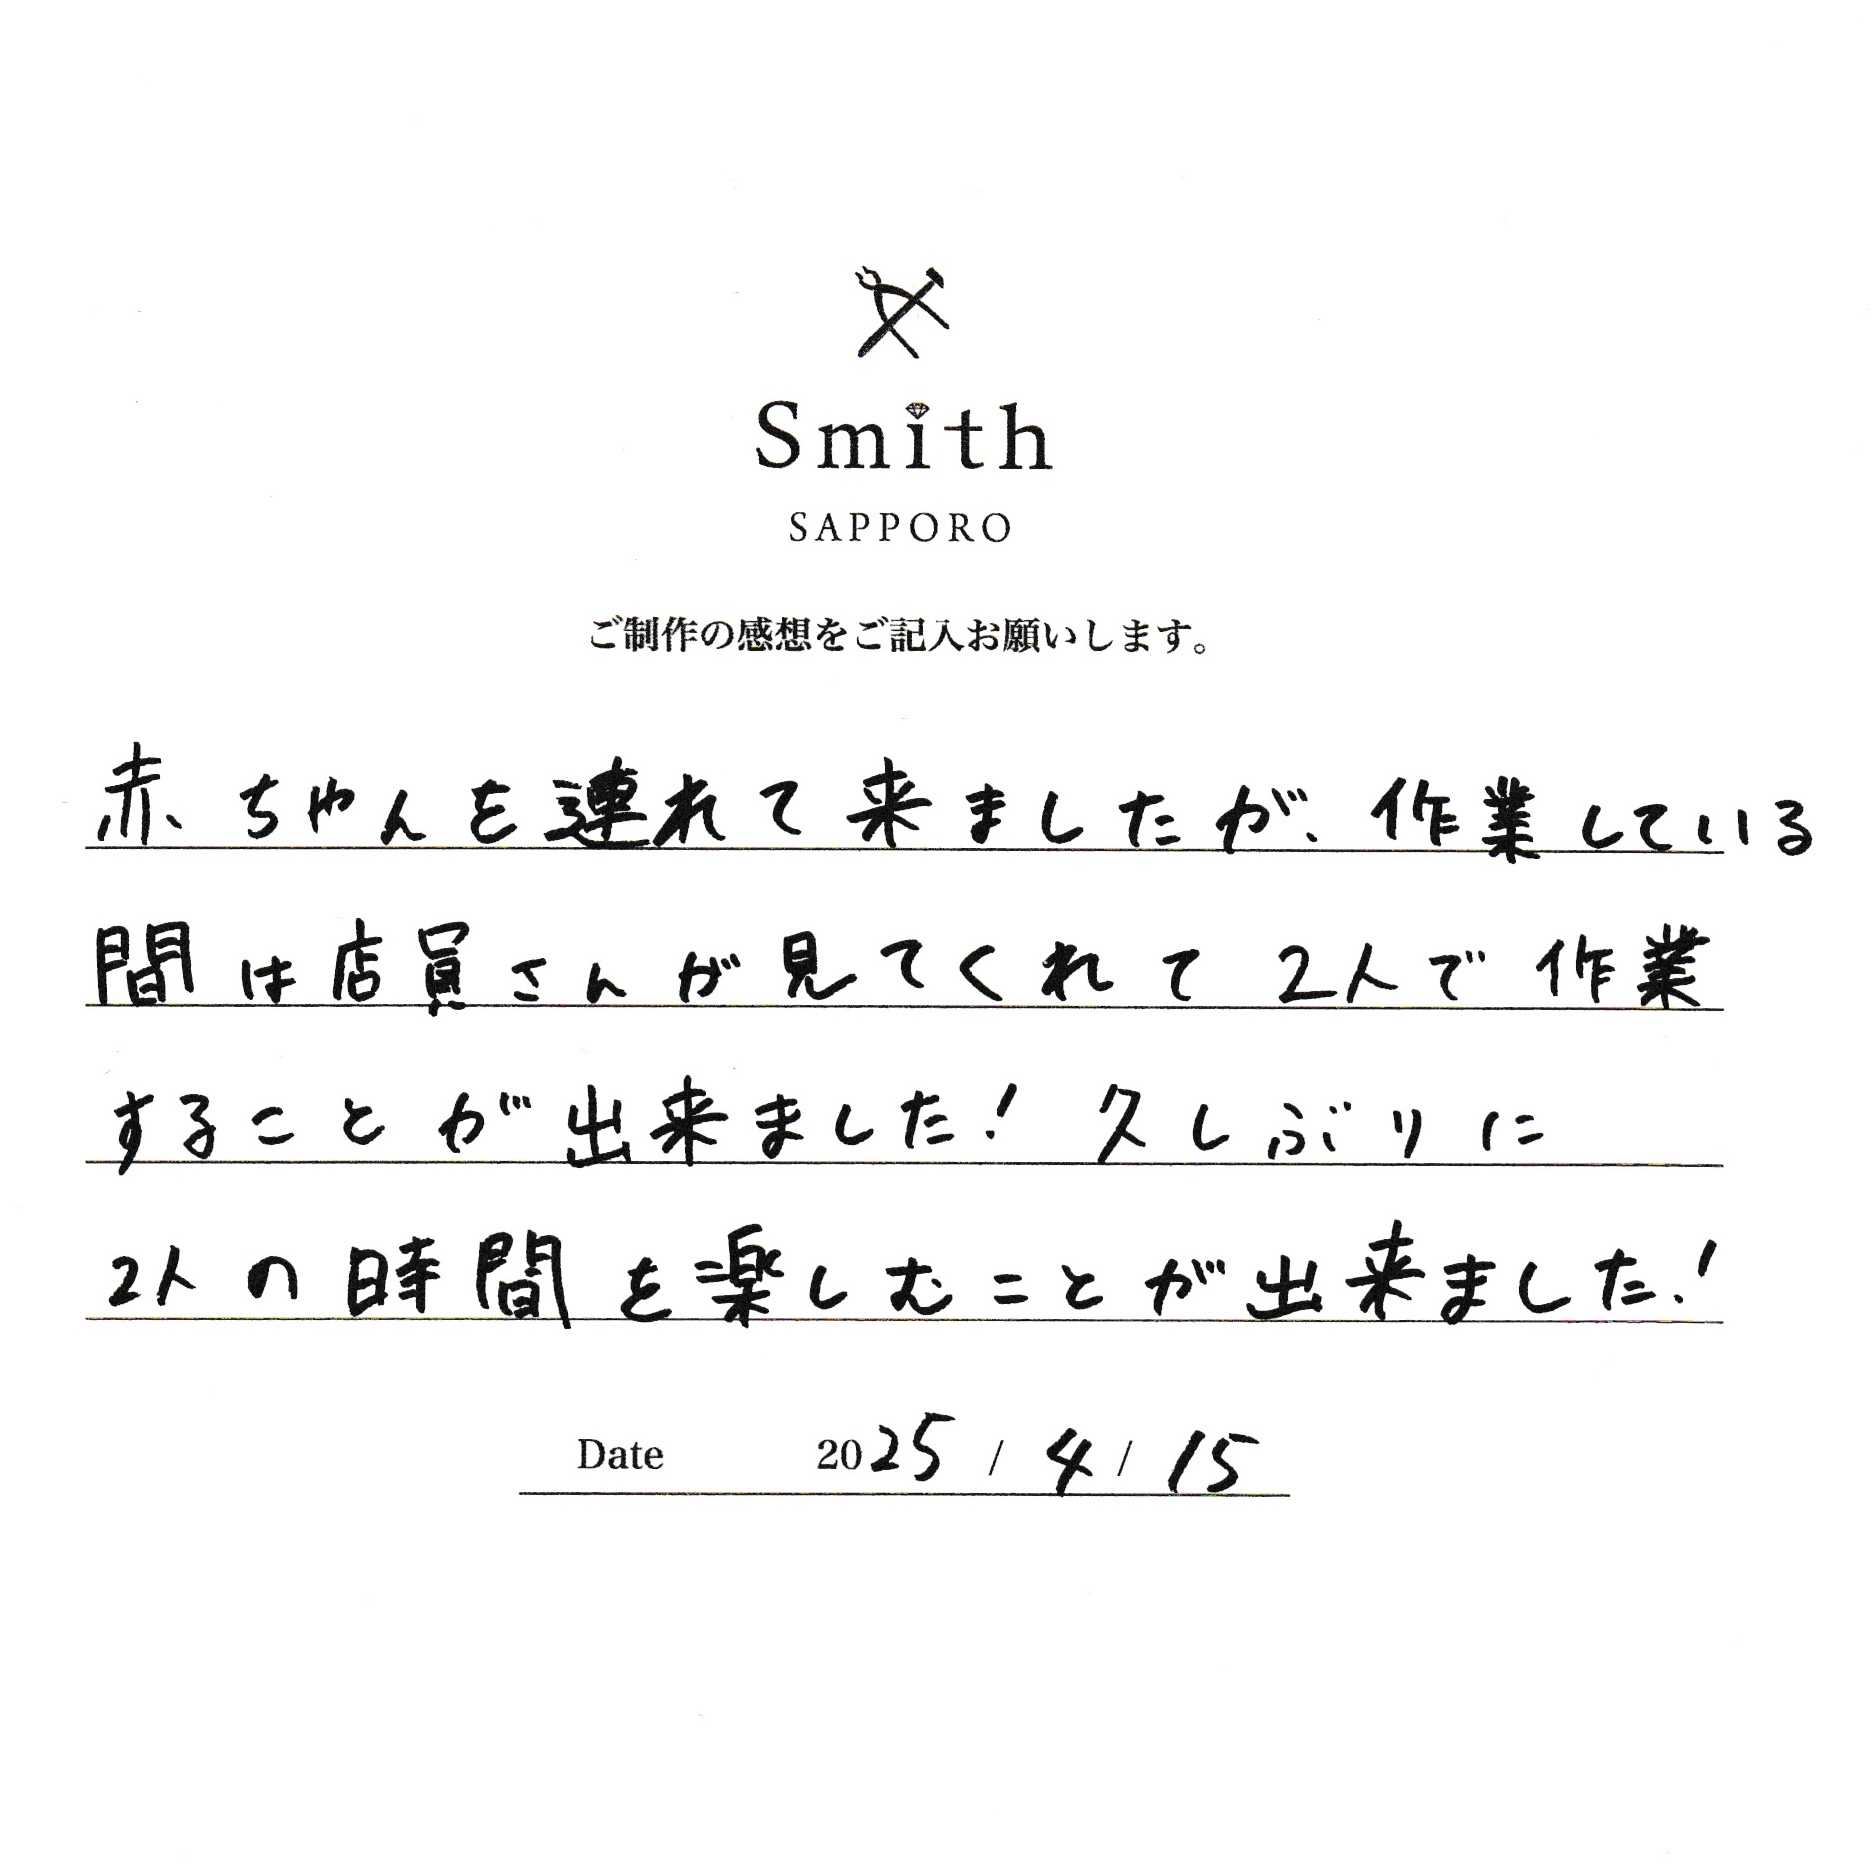 Smith
SAPPORO
ご制作の感想をご記入お願いします。
赤ちゃんを連れて来ましたが、作業している
間は店員さんが見てくれて2人で作業
することが出来ました！久しぶりに
2人の時間を楽しむことが出来ました！
Date 2025 / 4 / 15